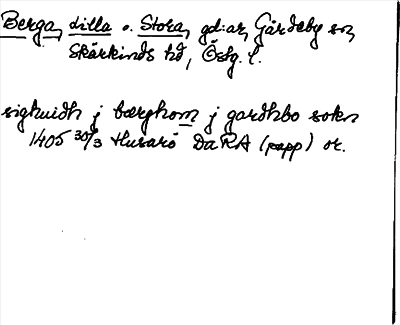 Berga, Lilla o. Stora, gd:ar, Gårdeby sn,
Skärkinds hd, Östg. l.
sighuidh j bærghom j gardhbo sokn
1405 30/3 Husarö DaRA (papp) or.